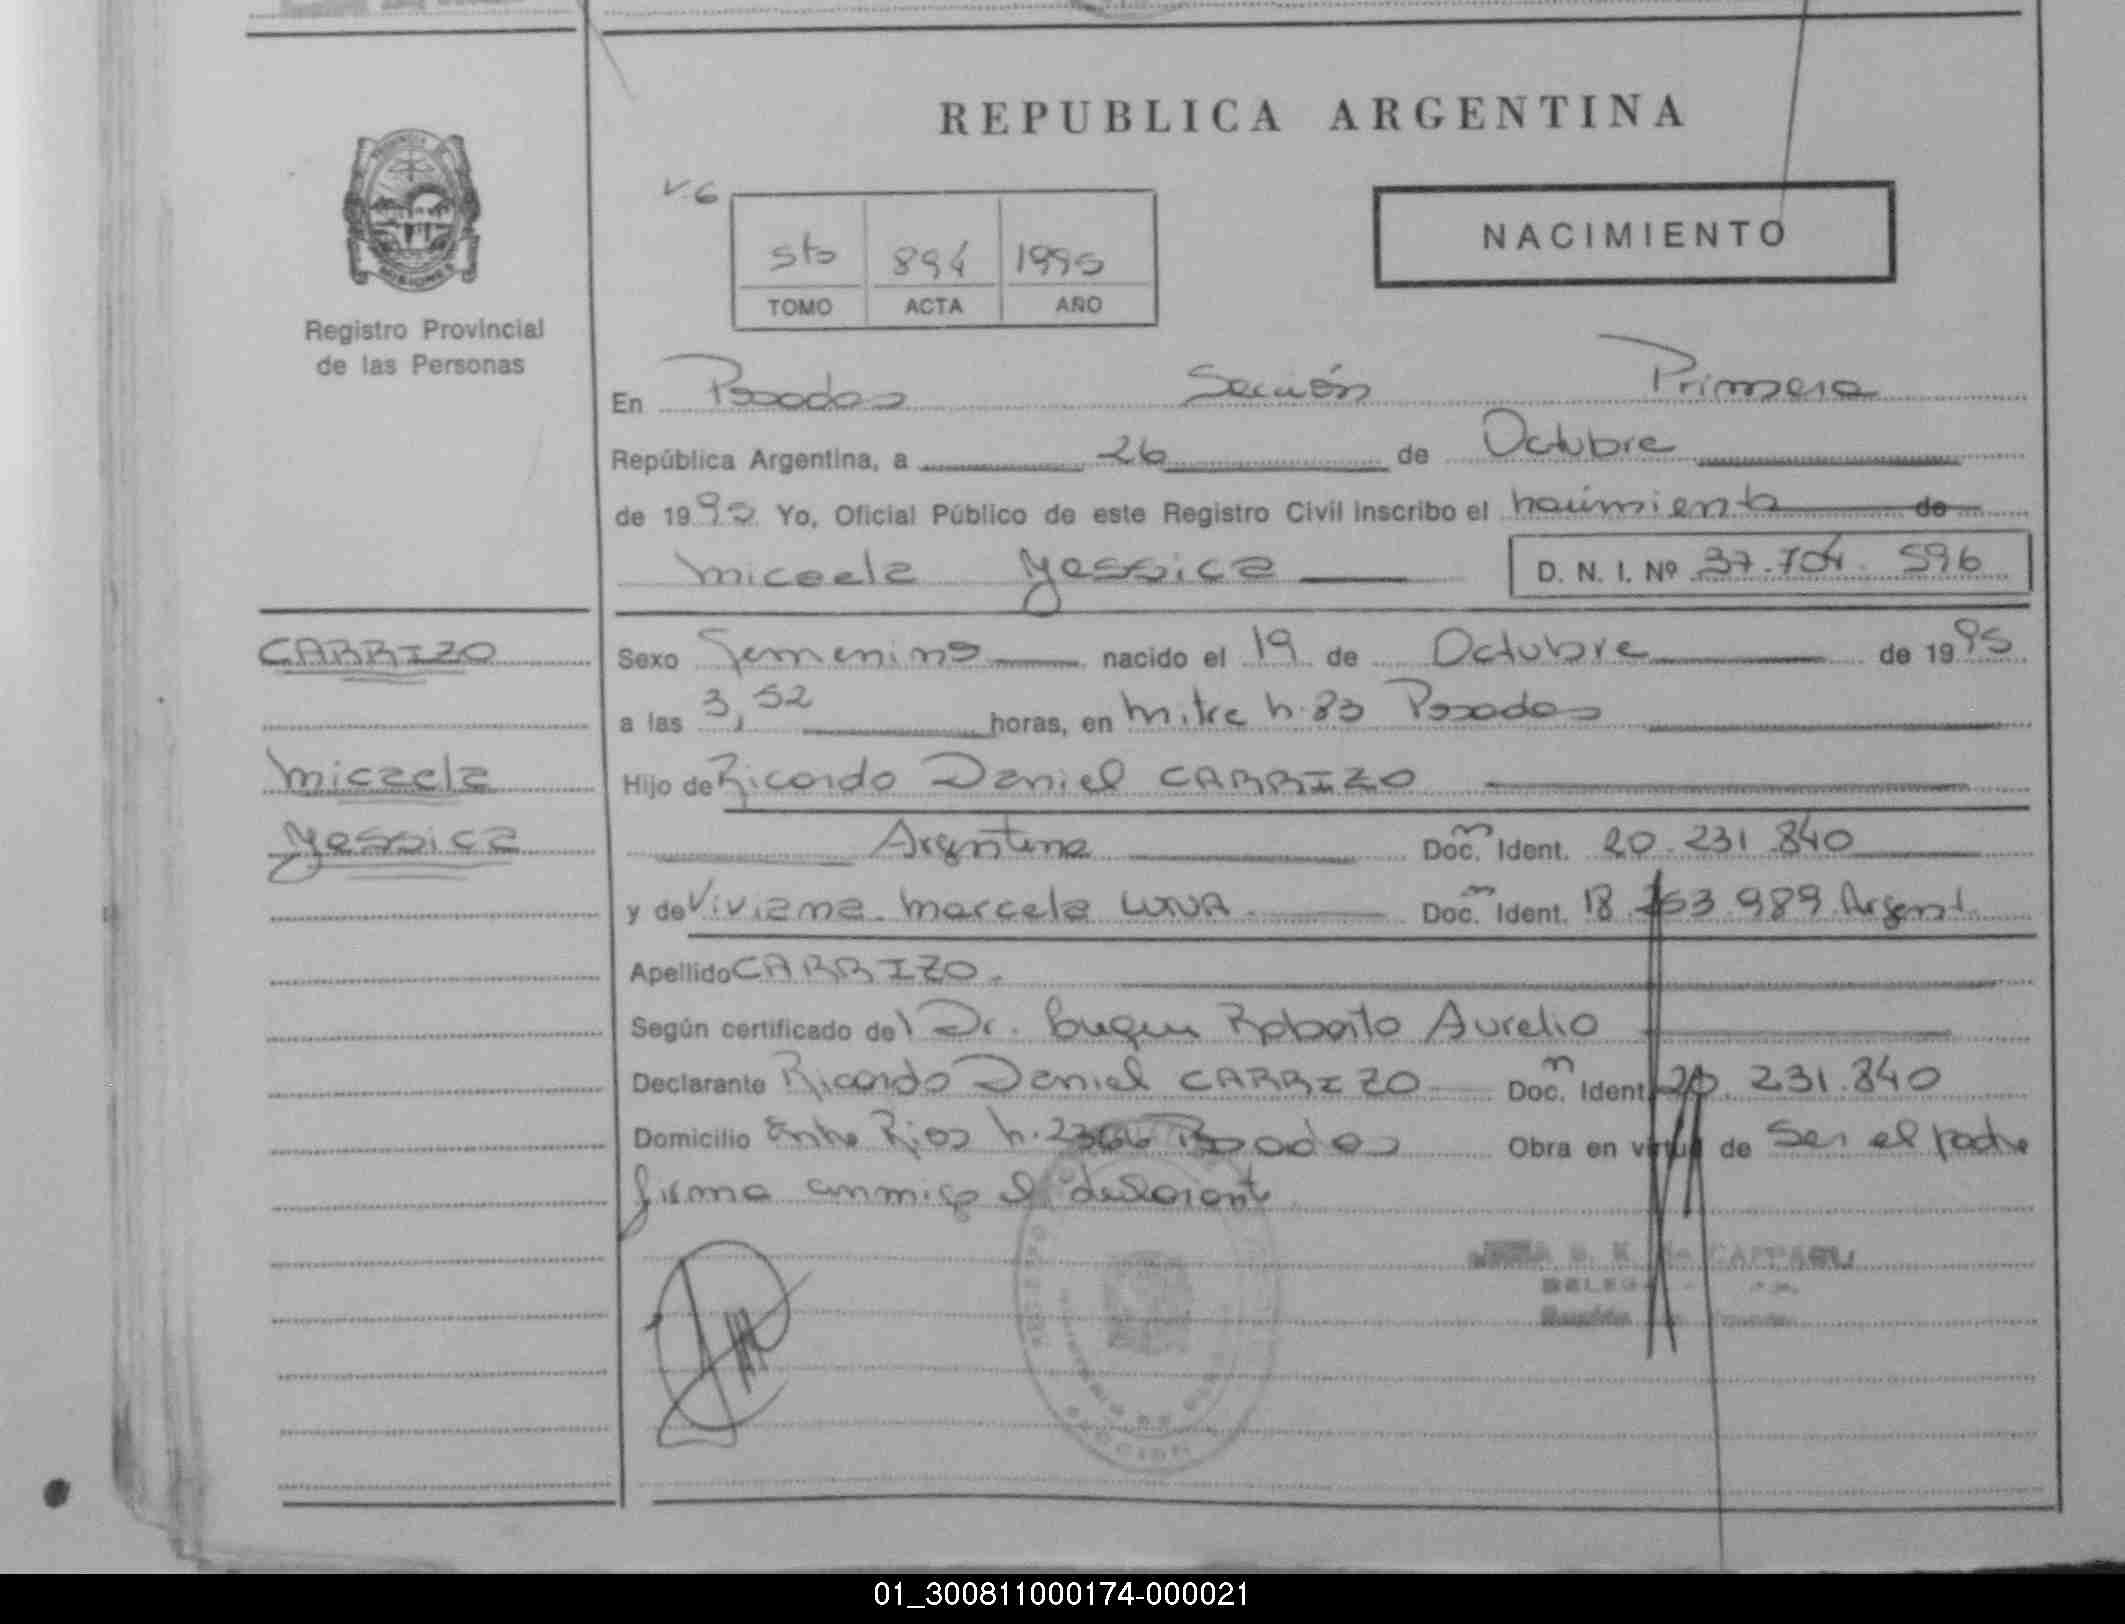 REPUBLICA ARGENTINA
NACIMIENTO
Registro Provincial
de las Personas
V.6
5to 894 1995
TOMO ACTA AÑO
En Posadas Sección Primera
República Argentina, a 26 de Octubre
de 1995 Yo, Oficial Público de este Registro Civil inscribo el nacimiento de
Micaela Yessica D. N. I. Nº 37.704.596
CARRIZO
Micaela
Yessica
Sexo Femenino nacido el 19 de Octubre de 1995
a las 3,52 horas, en Mitre n.83 Posadas
Hijo de Ricardo Daniel CARRIZO
Argentina Doc. Ident. 20.231.840
y de Viviana Marcela LUNA Doc. Ident. 18.763.989 Argent.
Apellido CARRIZO.
Según certificado del Dr. Roberto Aurelio
Declarante Ricardo Daniel CARRIZO Doc. Ident. 20.231.840
Domicilio Entre Rios n. Posadas Obra en virtud de Ser el padre
firma conmigo el declarante
01_300811000174-000021